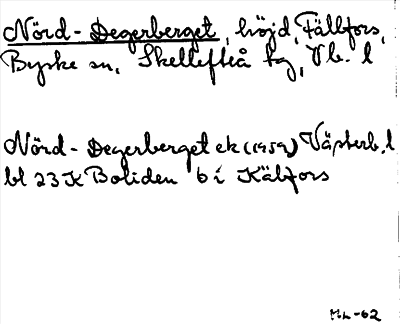 Nörd-Degerberget, höjd, Fällfors,
Byske sn, Skellefteå tg, Vb. l
Nörd-Degerberget ek (1959) Västerb. l
bl 23 K Boliden 6 i Kälfors
M.L-62